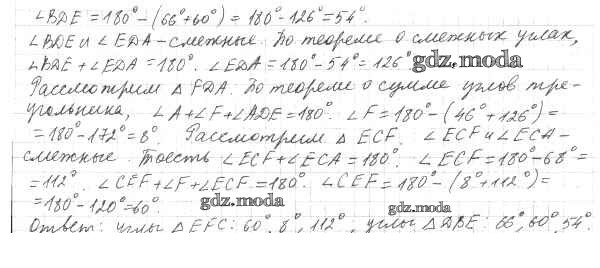 ∠BDE = 180° - (66° + 60°) = 180° - 126° = 54°.
∠BDE и ∠EDA - смежные. По теореме о смежных углах,
∠BDE + ∠EDA = 180°. ∠EDA = 180° - 54° = 126° gdz.moda
Рассмотрим △FDA. По теореме о сумме углов тре-
угольника, ∠A + ∠F + ∠ADE = 180°. ∠F = 180° - (46° + 126°) =
= 180° - 172° = 8°. Рассмотрим △ECF. ∠ECF и ∠ECA -
смежные. Тоесть ∠ECF + ∠ECA = 180°. ∠ECF = 180° - 68° =
= 112°. ∠CEF + ∠F + ∠ECF = 180°. ∠CEF = 180° - (8° + 112°) =
= 180° - 120° = 60°. gdz.moda gdz.moda
Ответ: углы △EFC: 60°, 8°, 112°, углы △DBE: 66°, 60°, 54°.